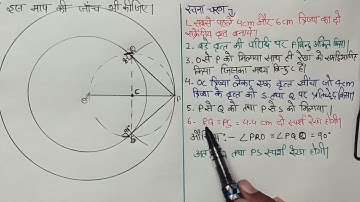 इस माप की जाँच भी कीजिए।
रचना चरण :-
1. सबसे पहले 4cm और 6cm त्रिज्या का दो
संकेन्द्रीय वृत्त बनाये
2. बड़े वृत्त की परिधि पर P बिन्दु अंकित किया।
3. O से P को मिलाया साथ ही रेखा को समद्विभाजित
किया जिसका मध्य बिन्दु C है।
4. OC त्रिज्या लेकर एक वृत्त खींचा जो 4cm
त्रिज्या के वृत्त को S तथा Q पर प्रतिच्छेद किया।
5. P से Q को तथा P से S को मिलाया।
6. PQ = PS = 4.4 cm दो स्पर्श रेखा होगी।
= 90°
तथा PS स्पर्श रेखा होगी।
C
P